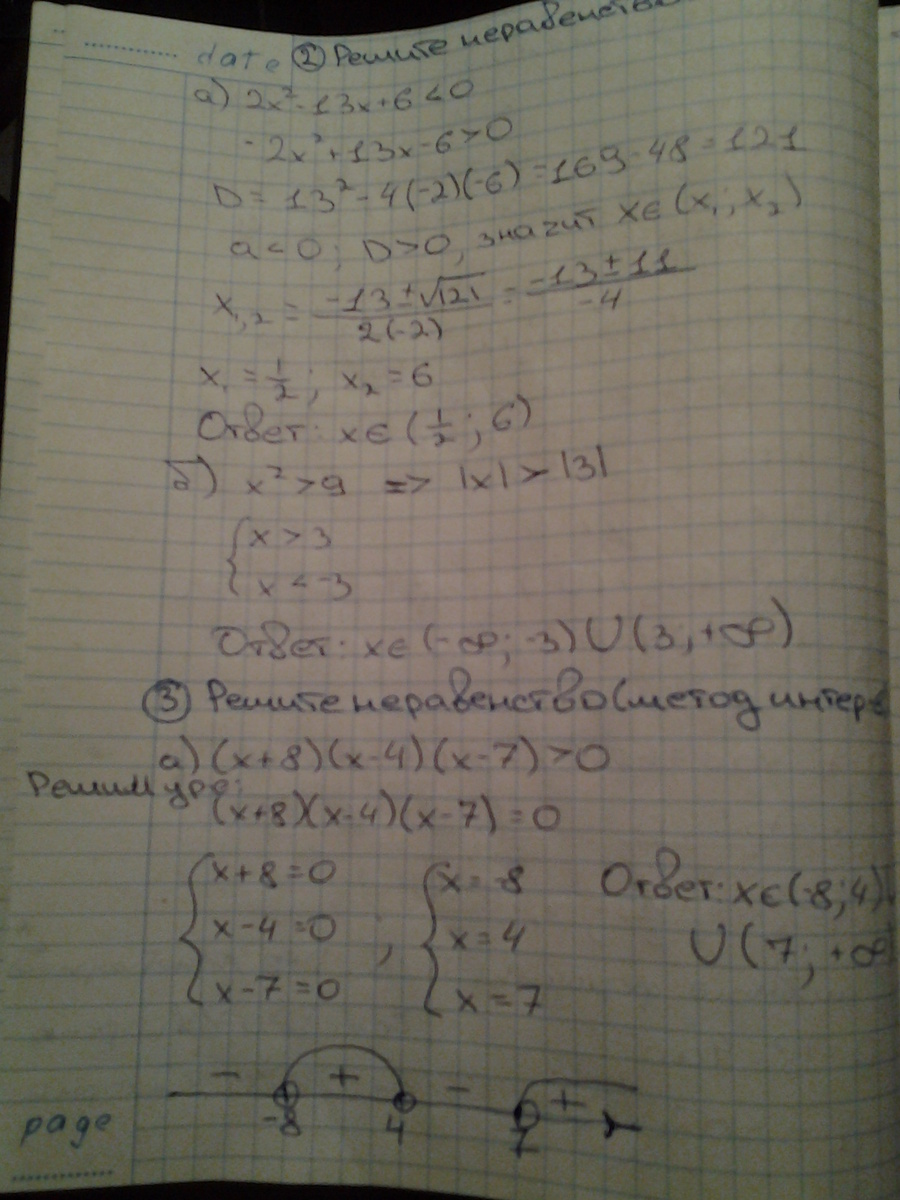 date ② Решите неравенство
а) 2x²-13x+6<0
-2x²+13x-6>0
D = 13²-4(-2)(-6) = 169-48 = 121
a<0; D>0, значит x∈(x₁; x₂)
x₁,₂ = (-13±√121)/(2(-2)) = (-13±11)/(-4)
x₁ = 1/2; x₂ = 6
Ответ: x∈(1/2; 6)
б) x²>9 => |x|>|3|
{ x > 3
x < -3
Ответ: x∈(-∞; -3)∪(3, +∞)
③ Решите неравенство (метод интерв
а) (x+8)(x-4)(x-7)>0
Решим урв:
(x+8)(x-4)(x-7)=0
{ x+8=0 , { x=-8 Ответ: x∈(-8; 4)
x-4=0 x=4 ∪(7; +∞
x-7=0 x=7
- + - +
-8 4 7
page